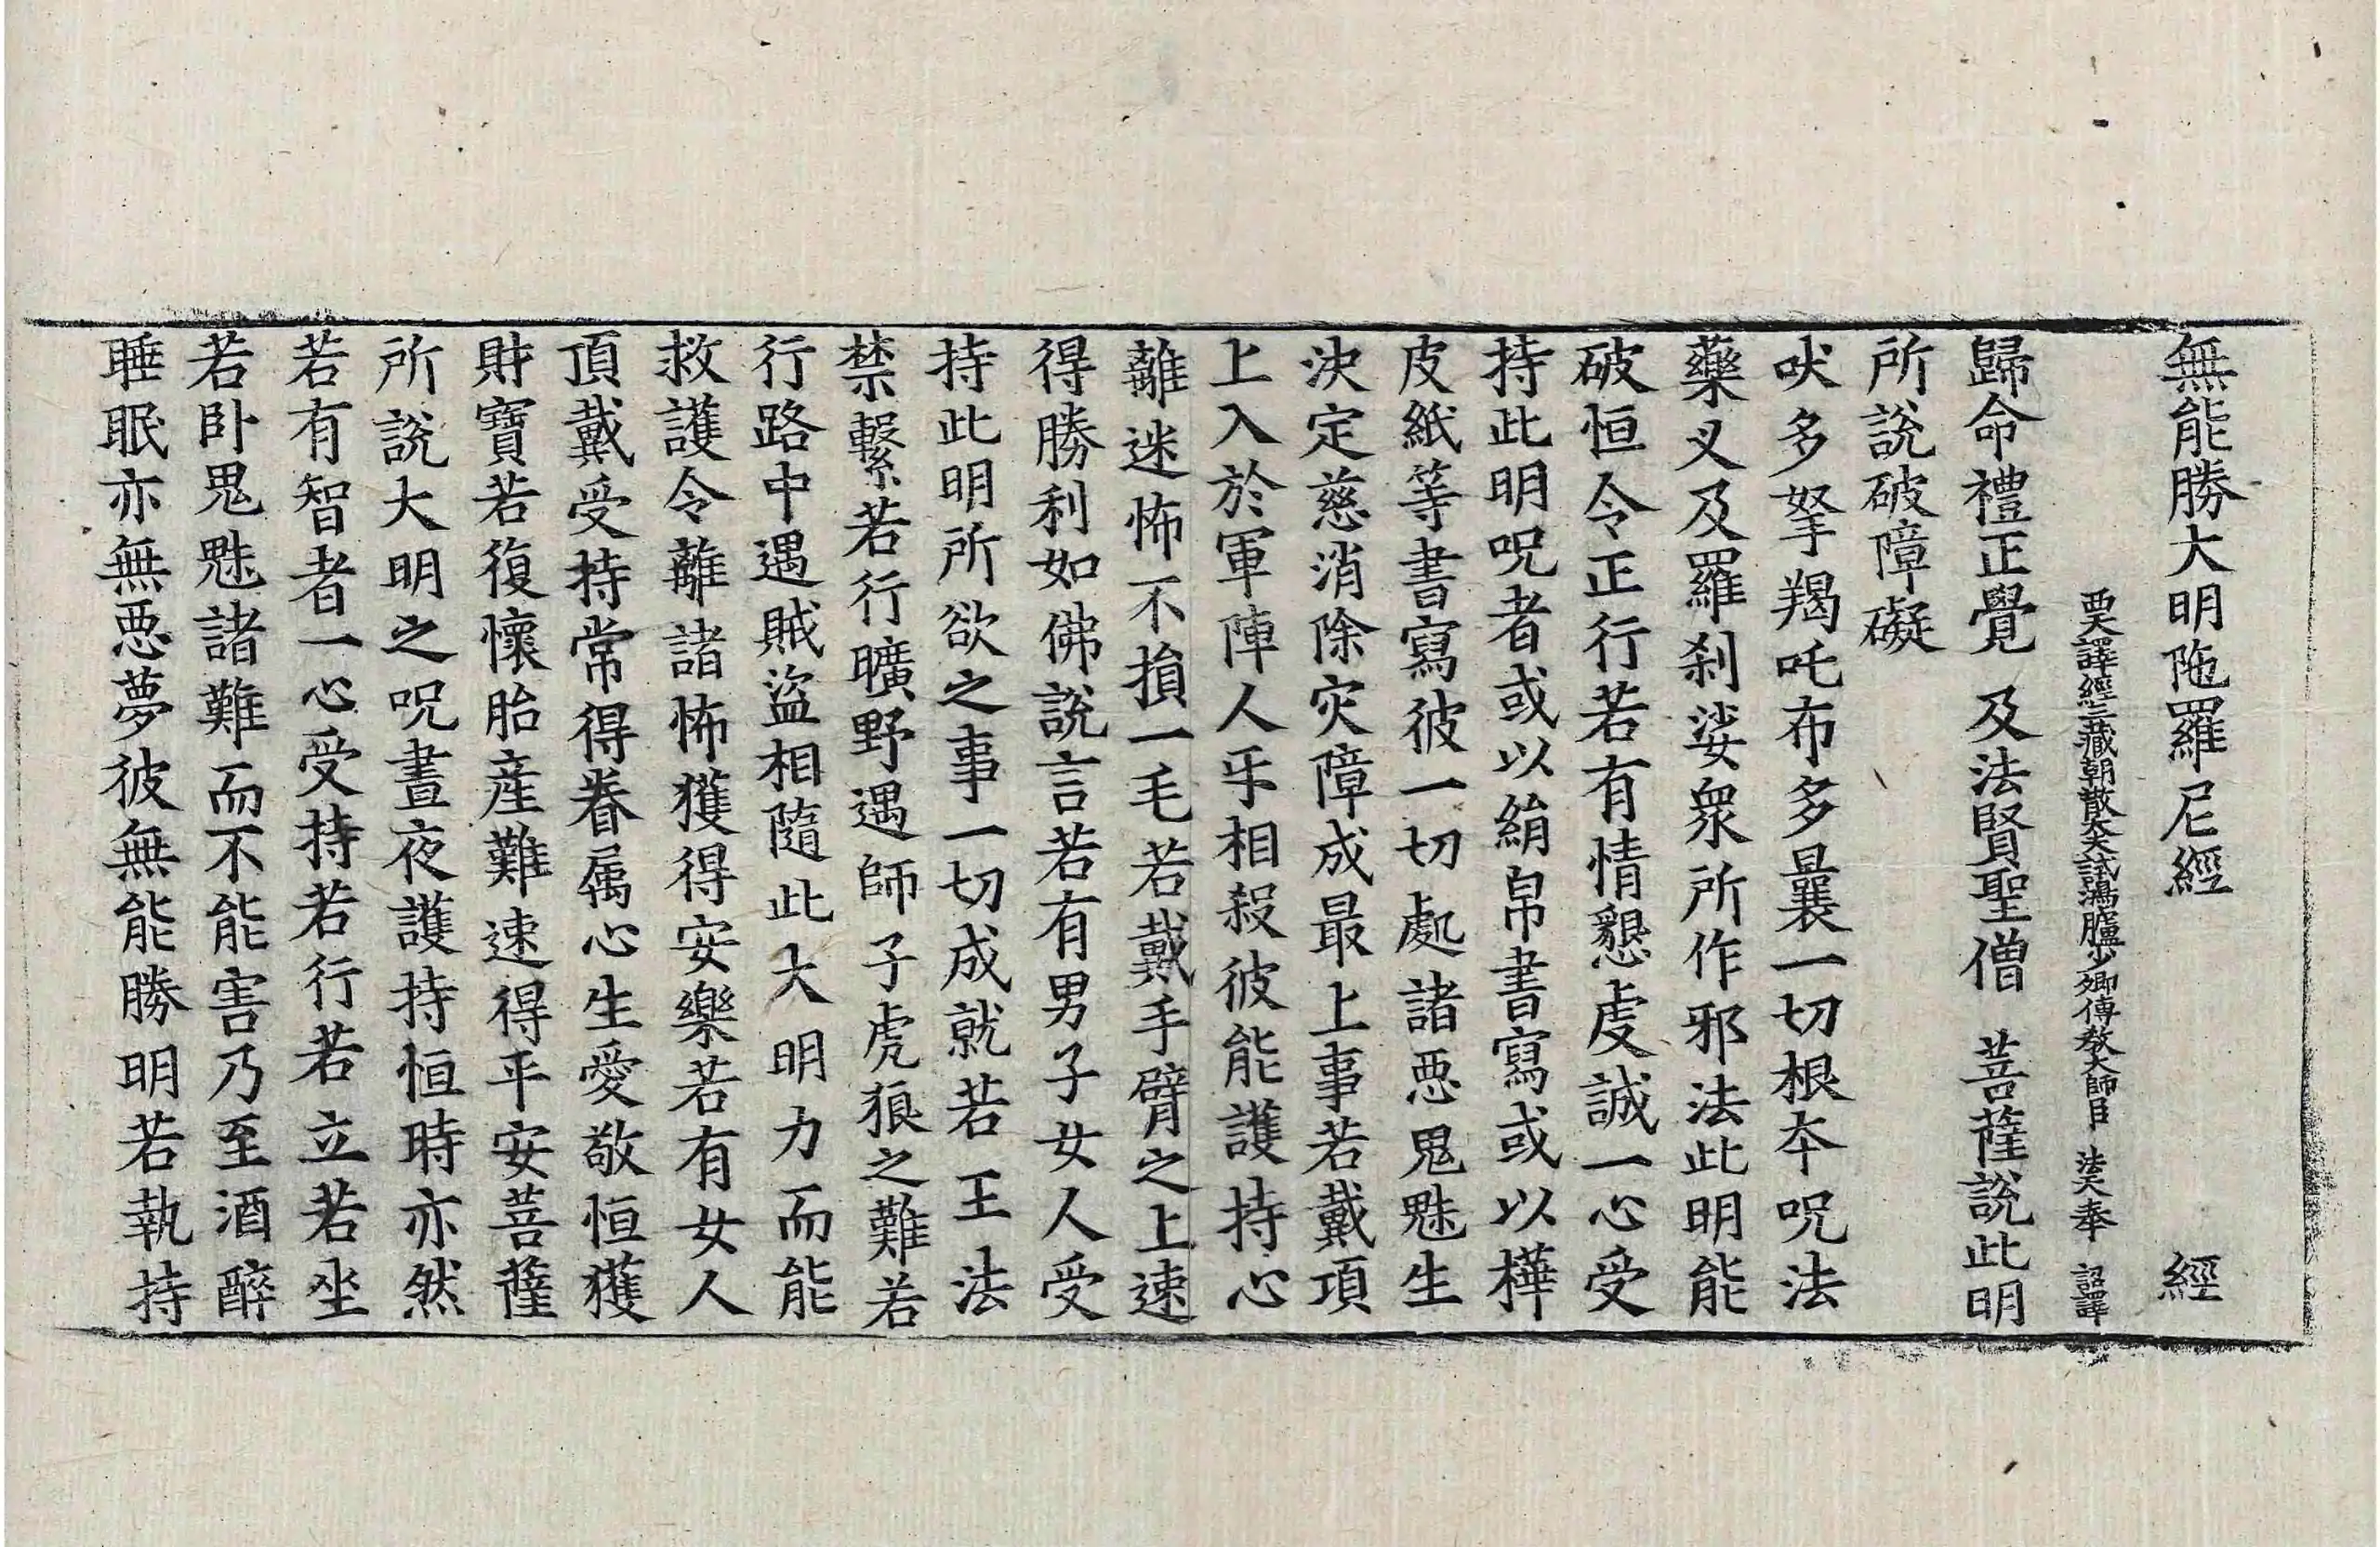 無能勝大明陁羅尼經 經
西天譯經三藏朝散大夫試鴻臚少卿傳教大師臣 法天奉 詔譯
歸命禮正覺 及法賢聖僧 菩薩說此明
所說破障礙
吠多拏羯吒布多曩一切根夲呪法
藥叉及羅刹娑衆所作邪法此明能
破恒令正行若有情懇虔誠一心受
持此明呪者或以絹帛書寫或以樺
皮紙等書寫彼一切處諸惡鬼魅生
決定慈消除灾障成最上事若戴項
上入於軍陣人乎相殺彼能護持心
離迷怖不損一毛若戴手臂之上速
得勝利如佛說言若有男子女人受
持此明所欲之事一切成就若王法
禁繫若行曠野遇師子虎狼之難若
行路中遇賊盜相隨此大明力而能
救護令離諸怖獲得安樂若有女人
頂戴受持常得眷属心生愛敬恒獲
財寶若復懷胎産難速得平安菩薩
所說大明之呪晝夜護持恒時亦然
若有智者一心受持若行若立若坐
若卧鬼魅諸難而不能害乃至酒醉
睡眠亦無惡夢彼無能勝明若執持